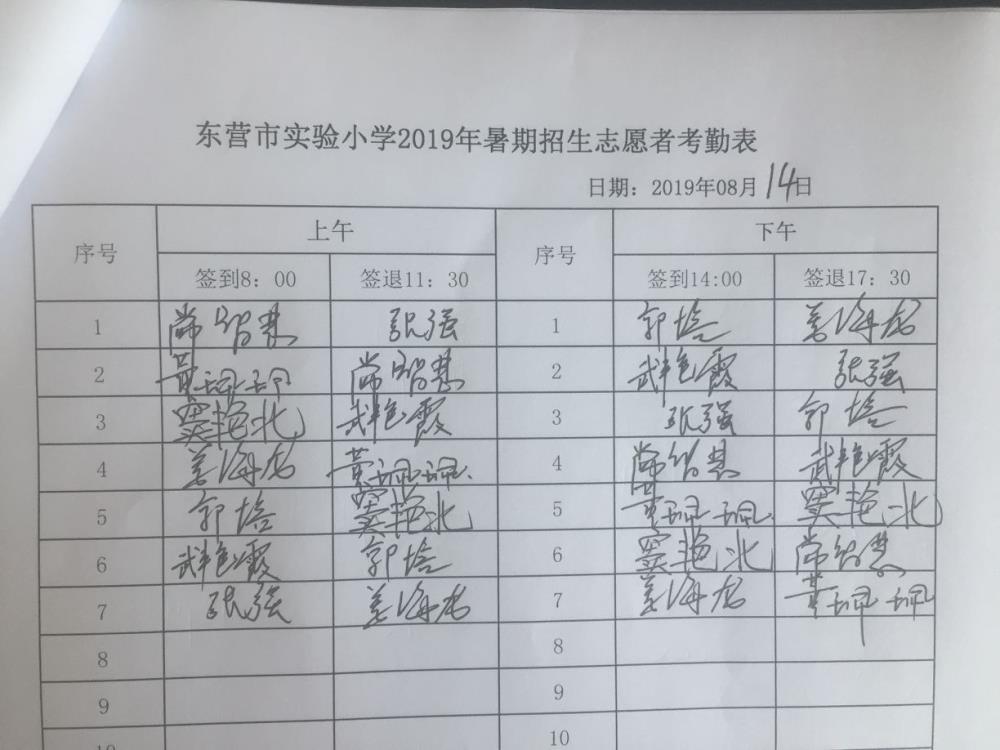 东营市实验小学2019年暑期招生志愿者考勤表
日期：2019年08月14日
序号 上午 序号 下午
签到8：00 签退11：30 签到14:00 签退17：30
1 常智慧 张强 1 郭培 姜海龙
2 黄珊珊 常智慧 2 武艳霞 张强
3 窦艳北 武艳霞 3 张强 郭培
4 姜海龙 黄珊珊 4 常智慧 武艳霞
5 郭培 窦艳北 5 黄珊珊 窦艳北
6 武艳霞 郭培 6 窦艳北 常智慧
7 张强 姜海龙 7 姜海龙 黄珊珊
8 8
9 9
10 10